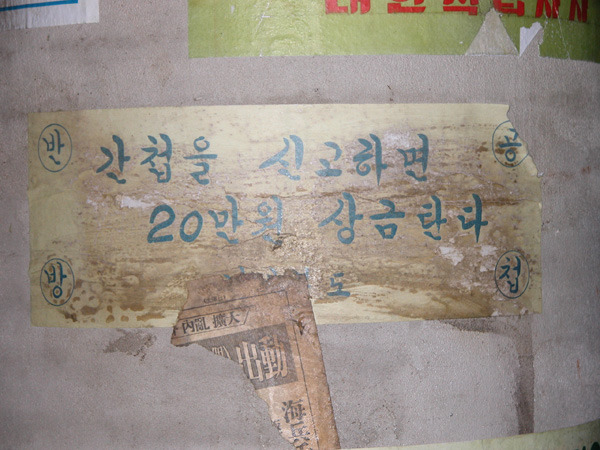 반 공
간첩을 신고하면
20만원 상금탄다
방 첩
도
內亂 擴大
出動
海兵